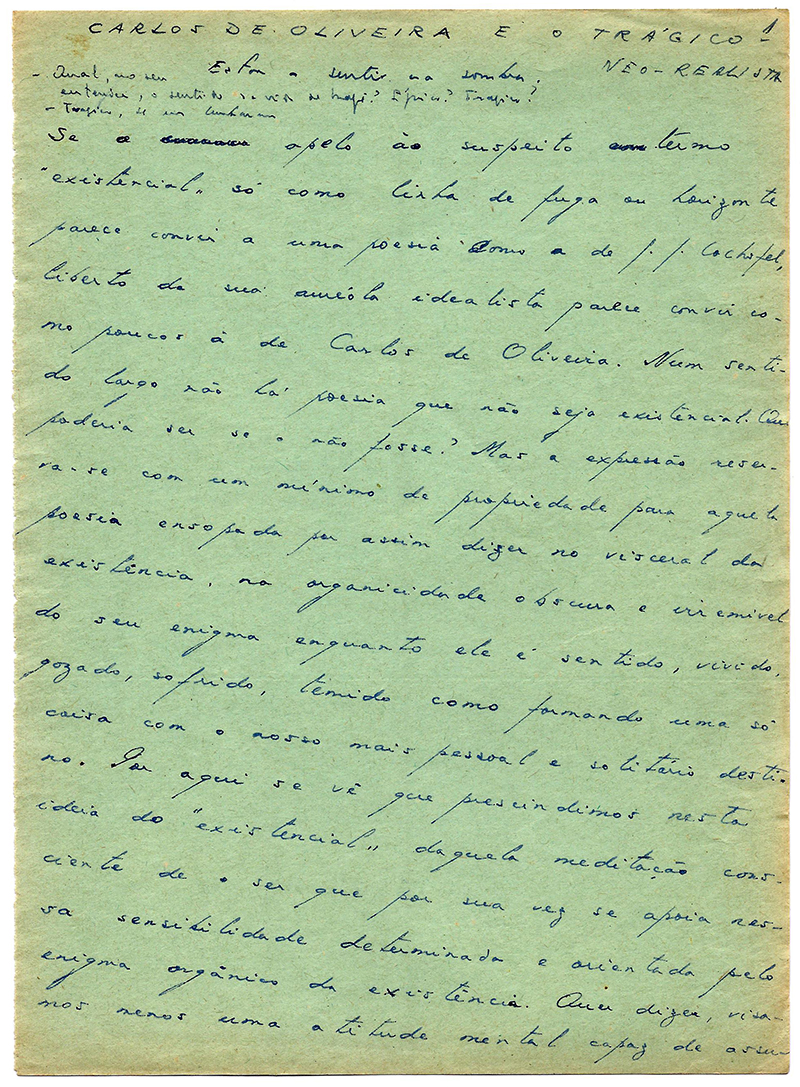 1
CARLOS DE OLIVEIRA E O TRÁGICO -
NEO-REALISTA
- Qual, no seu
entender, o sentido da vida de hoje? Épico? Trágico?
- Trágico, se
o sentir na sombra.
Se o apelo ao suspeito termo
"existêncial" só como linha de fuga ou horizonte
parece convir a uma poesia como a de J. J. Cochofel,
liberto de sua auréola idealista parece convir co-
mo poucos à de Carlos de Oliveira. Num senti-
do largo não há poesia que não seja existêncial. Que
poderia ser se o não fosse? Mas a expressão reser-
va-se com um mínimo de propriedade para aquela
poesia ensopada por assim dizer no visceral da
existência, na organicidade obscura e irremivel
do seu enigma enquanto ele é sentido, vivido,
gozado, sofrido, temido como formando uma só
coisa com o nosso mais pessoal e solitário desti-
no. Por aqui se vê que prescindimos nesta
ideia do "existêncial" daquela meditação cons-
ciente de o ser que por sua vez se apoia nes-
sa sensibilidade determinada e orientada pelo
enigma orgânico da existência. Quer dizer, visa-
mos menos uma atitude mental capaz de assu-